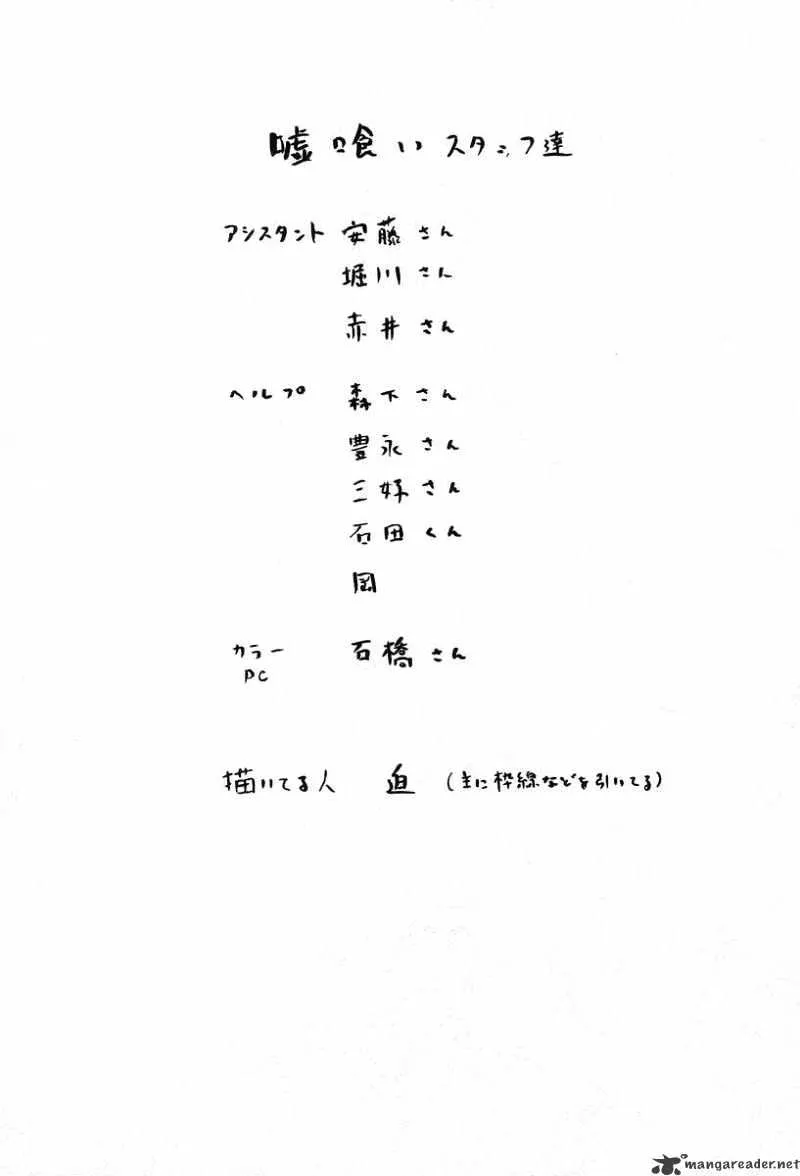 嘘喰いスタッフ達
アシスタント 安藤さん
堀川さん
赤井さん
ヘルプ 森下さん
豊永さん
三好さん
石田くん
岡
カラー 石橋さん
PC
描いてる人 迫 (主に枠線などを引いてる)
mangareader.net